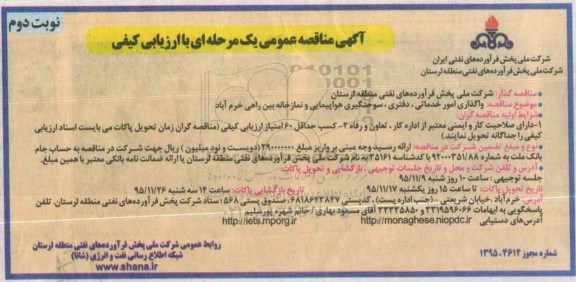 نوبت دوم
آگهی مناقصه عمومی یک مرحله ای با ارزیابی کیفی
شرکت ملی پخش فرآورده‌های نفتی ایران
شرکت ملی پخش فرآورده‌های نفتی منطقه لرستان
مناقصه گذار: شرکت ملی پخش فرآورده‌های نفتی منطقه لرستان
موضوع مناقصه: واگذاری امور خدماتی، دفتری، سوختگیری هواپیمایی و نمازخانه بین راهی خرم آباد
شرایط اولیه مناقصه گران:
۱-دارای صلاحیت کار و ایمنی معتبر از اداره کار، تعاون و رفاه ۲- کسب حداقل ۶۰ امتیاز ارزیابی کیفی (مناقصه گران زمان تحویل پاکات می بایست اسناد ارزیابی
کیفی را جداگانه تحویل نمایند.)
نوع و مبلغ تضمین شرکت در مناقصه: ارائه رسید وجه مبنی بر واریز مبلغ ۲۹۰۰۰۰۰۰۰ (دویست و نود میلیون) ریال جهت شرکت در مناقصه به حساب جام
بانک ملت به شماره ۹۲۰۰۰۳۵۱/۸۸ با کدشناسه ۳۵۱۶۱ به نام شرکت ملی پخش فرآورده‌های نفتی منطقه لرستان یا ارائه ضمانت نامه بانکی معتبر با همین مبلغ.
آدرس و تلفن شرکت و محل و تاریخ جلسات توجیهی، بازگشایی و تحویل پاکات:
جلسه توجیهی: ساعت ۱۰ روز شنبه ۹۵/۱۱/۹
تاریخ تحویل پاکات: تا ساعت ۱۵ روز یکشنبه ۹۵/۱۱/۱۷ تاریخ بازگشایی پاکات: ساعت ۱۴ سه شنبه ۹۵/۱۱/۲۶
آدرس: خرم آباد، خیابان شریعتی - (جنب اداره پست)، کدپستی ۶۸۱۸۶۴۳۸۴۷، صندوق پستی ۵۶۸؛ ستاد شرکت پخش فرآورده‌های نفتی منطقه لرستان. تلفن
پاسخگویی به ابهامات ۳۳۱۹۵۹۶۰۶۶ و ۳۳۲۳۵۸۵۰ آقای مسعود بهاری / خانم شهره پورسلیم
آدرس‌های دستیابی http://monaghese.niopdc.ir http://iets.mporg.ir
روابط عمومی شرکت ملی پخش فرآورده‌های نفتی منطقه لرستان
شبکه اطلاع رسانی نفت و انرژی (شانا)
www.shana.ir
شماره مجوز ۱۳۹۵.۴۶۱۲